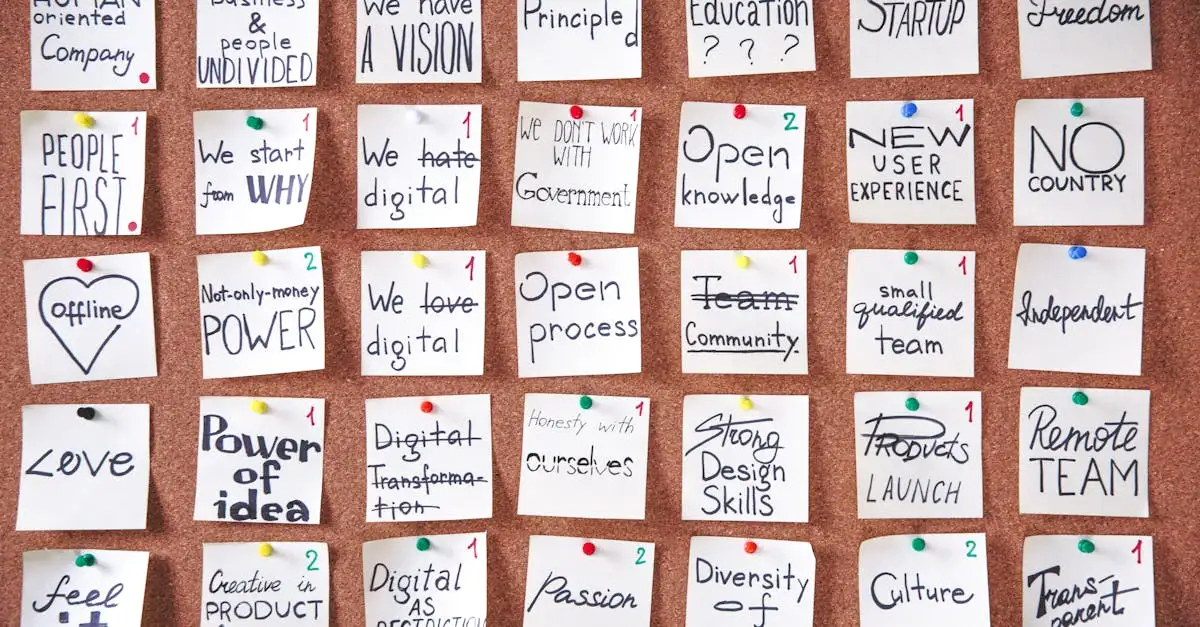 HUMAN
oriented
Company
Business
&
people
UNDIVIDED
We have
A VISION
Principled
Education
? ? ?
STARTUP
Freedom
1
PEOPLE
FIRST
1
We start
from WHY
1
We hate
digital
1
We DON'T WORK
WITH
Government
2
Open
knowledge
1
NEW
USER
EXPERIENCE
NO
COUNTRY
offline
2
Not-only-money
POWER
1
We love
digital
Open
process
1
Team
Community.
1
small
qualified
team
Independent
Love
1
Power
of
idea
Digital
Transforma-
tion
1
Honesty with
ourselves
Strong
Design
Skills
1
PRODUCTS
LAUNCH
Remote
TEAM
feel
it
2
Creative in
PRODUCT
1
Digital
AS
RESTRICTION
2
Passion
Diversity
of
2
Culture
1
Trans-
parent